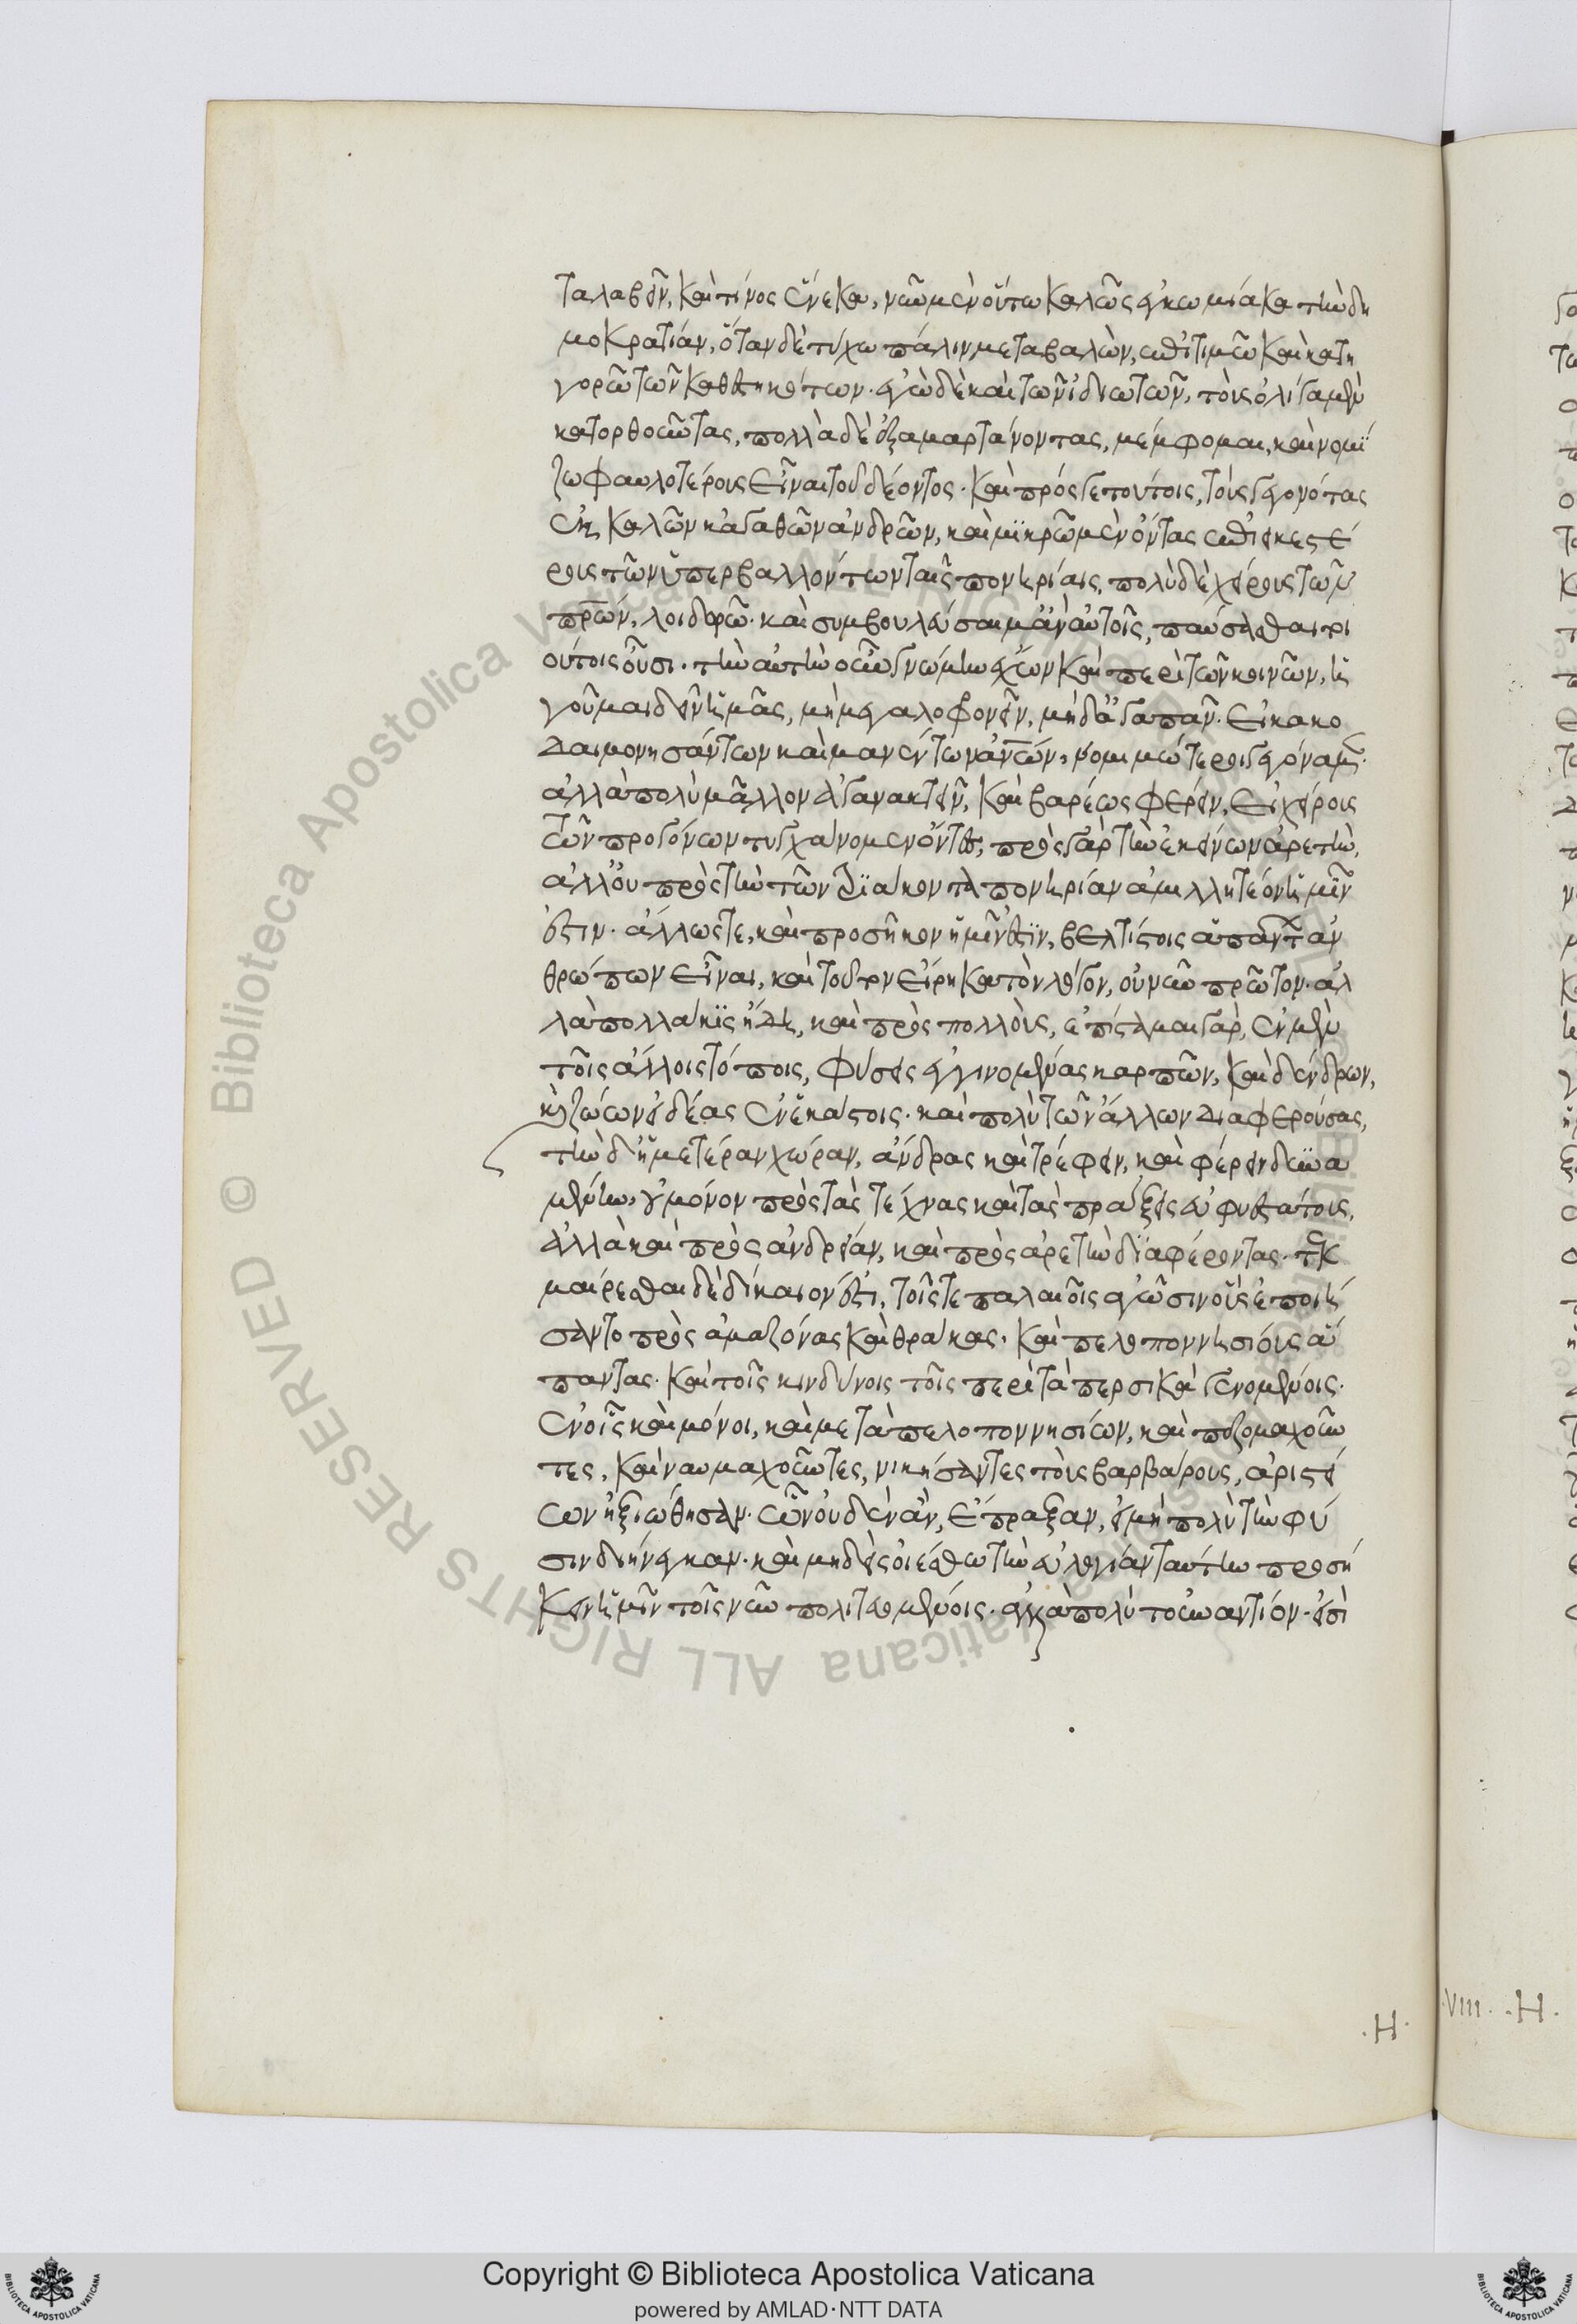 ταλαβεῖν, καὶ τίνος ἕνεκα, νῦν μὲν οὕτω καλῶς ἐγκωμίακα τὴν δη
μοκρατίαν, ὅταν δὲ τύχω πάλιν μεταβαλὼν, ἐπιτιμῶ καὶ κατη
γορῶ τῶν καθεστηκότων. ἐγὼ δὲ καὶ τῶν ἰδιωτῶν, τοὺς ὀλίγα μὲν
κατορθοῦντας, πολλὰ δὲ ἐξαμαρτάνοντας, μέμφομαι, καὶ νομί
ζω φαυλοτέρους εἶναι τοῦ δέοντος. καὶ πρός γε τούτοις, τοὺς γεγονότας
ἐκ καλῶν κἀγαθῶν ἀνδρῶν, καὶ μικρῶ μὲν ὄντας ἐπιεικεστέ
ρους τῶν ὑπερβαλλόντων ταῖς πονηρίαις, πολὺ δὲ χείρους τῶν
πρων, λοιδορῶ. καὶ συμβουλεύσαιμ' ἂν αὐτοῖς, παύσασθαι τοι
ούτοις οὖσι. τὴν αὐτὴν οὖν γνώμην ἔχων καὶ περὶ τῶν κοινῶν, ἡ
γοῦμαι δεῖν ἡμᾶς, μὴ μεγαλοφρονεῖν, μηδ' ἀγαπᾶν. εἰ κακο
δαιμονησάντων καὶ μανέντων ἀνων, νομιμώτεροι γεγόναμεν.
ἀλλὰ πολὺ μᾶλλον ἀγανακτεῖν, καὶ βαρέως φέρειν, εἰ χείρους
τῶν προγόνων τυγχάνομεν ὄντες, πρὸς γὰρ τὴν ἐκείνων ἀρετὴν,
ἀλλ' οὐ πρὸς τὴν τῶν τριάκοντα πονηρίαν ἁμιλλητέον ἡμῖν
ἐστιν. ἄλλως τε, καὶ προσῆκον ἡμῖν ἐστὶν, βελτίστοις ἁπάντων ἀν
θρώπων εἶναι, καὶ τοῦτον εἴρηκα τὸν λόγον, οὐ νῦν πρῶτον. ἀλ
λὰ πολλάκις ἤδη, καὶ πρὸς πολλοὺς, ἐπίσταμαι γὰρ, ἐν μὲν
τοῖς ἄλλοις τόποις, φύσεις ἐγγινομένας καρπῶν, καὶ δένδρων,
καὶ ζώων ἰδέας ἐν ἑκάστοις. καὶ πολὺ τῶν ἄλλων διαφερούσας,
τὴν δ' ἡμετέραν χώραν, ἄνδρας καὶ τρέφειν, καὶ φέρειν δυνα
μένην, οὐ μόνον πρὸς τὰς τέχνας καὶ τὰς πράξεις εὐφυεστάτους,
ἀλλὰ καὶ πρὸς ἀνδρείαν, καὶ πρὸς ἀρετὴν διαφέροντας. τεκ
μαίρεσθαι δὲ δίκαιον ἐστι, τοῖς τε παλαιοῖς ἀγῶσιν οὓς ἐποιή
σαντο πρὸς ἀμαζόνας καὶ θρᾷκας. καὶ πελοποννησίους ἅ
παντας. καὶ τοῖς κινδύνοις τοῖς περὶ τὰ περσικὰ γενομένοις.
ἐν οἷς καὶ μόνοι, καὶ μετὰ πελοποννησίων, καὶ πεζομαχοῦν
τες, καὶ ναυμαχοῦντες, νικήσαντες τοὺς βαρβάρους, ἀριστεί
ων ἠξιώθησαν. ὧν οὐδὲν ἂν, ἔπραξαν, εἰ μὴ πολὺ τὴν φύ
σιν διήνεγκαν. καὶ μηδεὶς οἰέσθω τὴν εὐλογίαν ταύτην προσή
κειν ἡμῖν τοῖς νῦν πολιτευομένοις. ἀλλὰ πολὺ τοὐναντίον. ἐσὶ
.H.
VIII. .H.